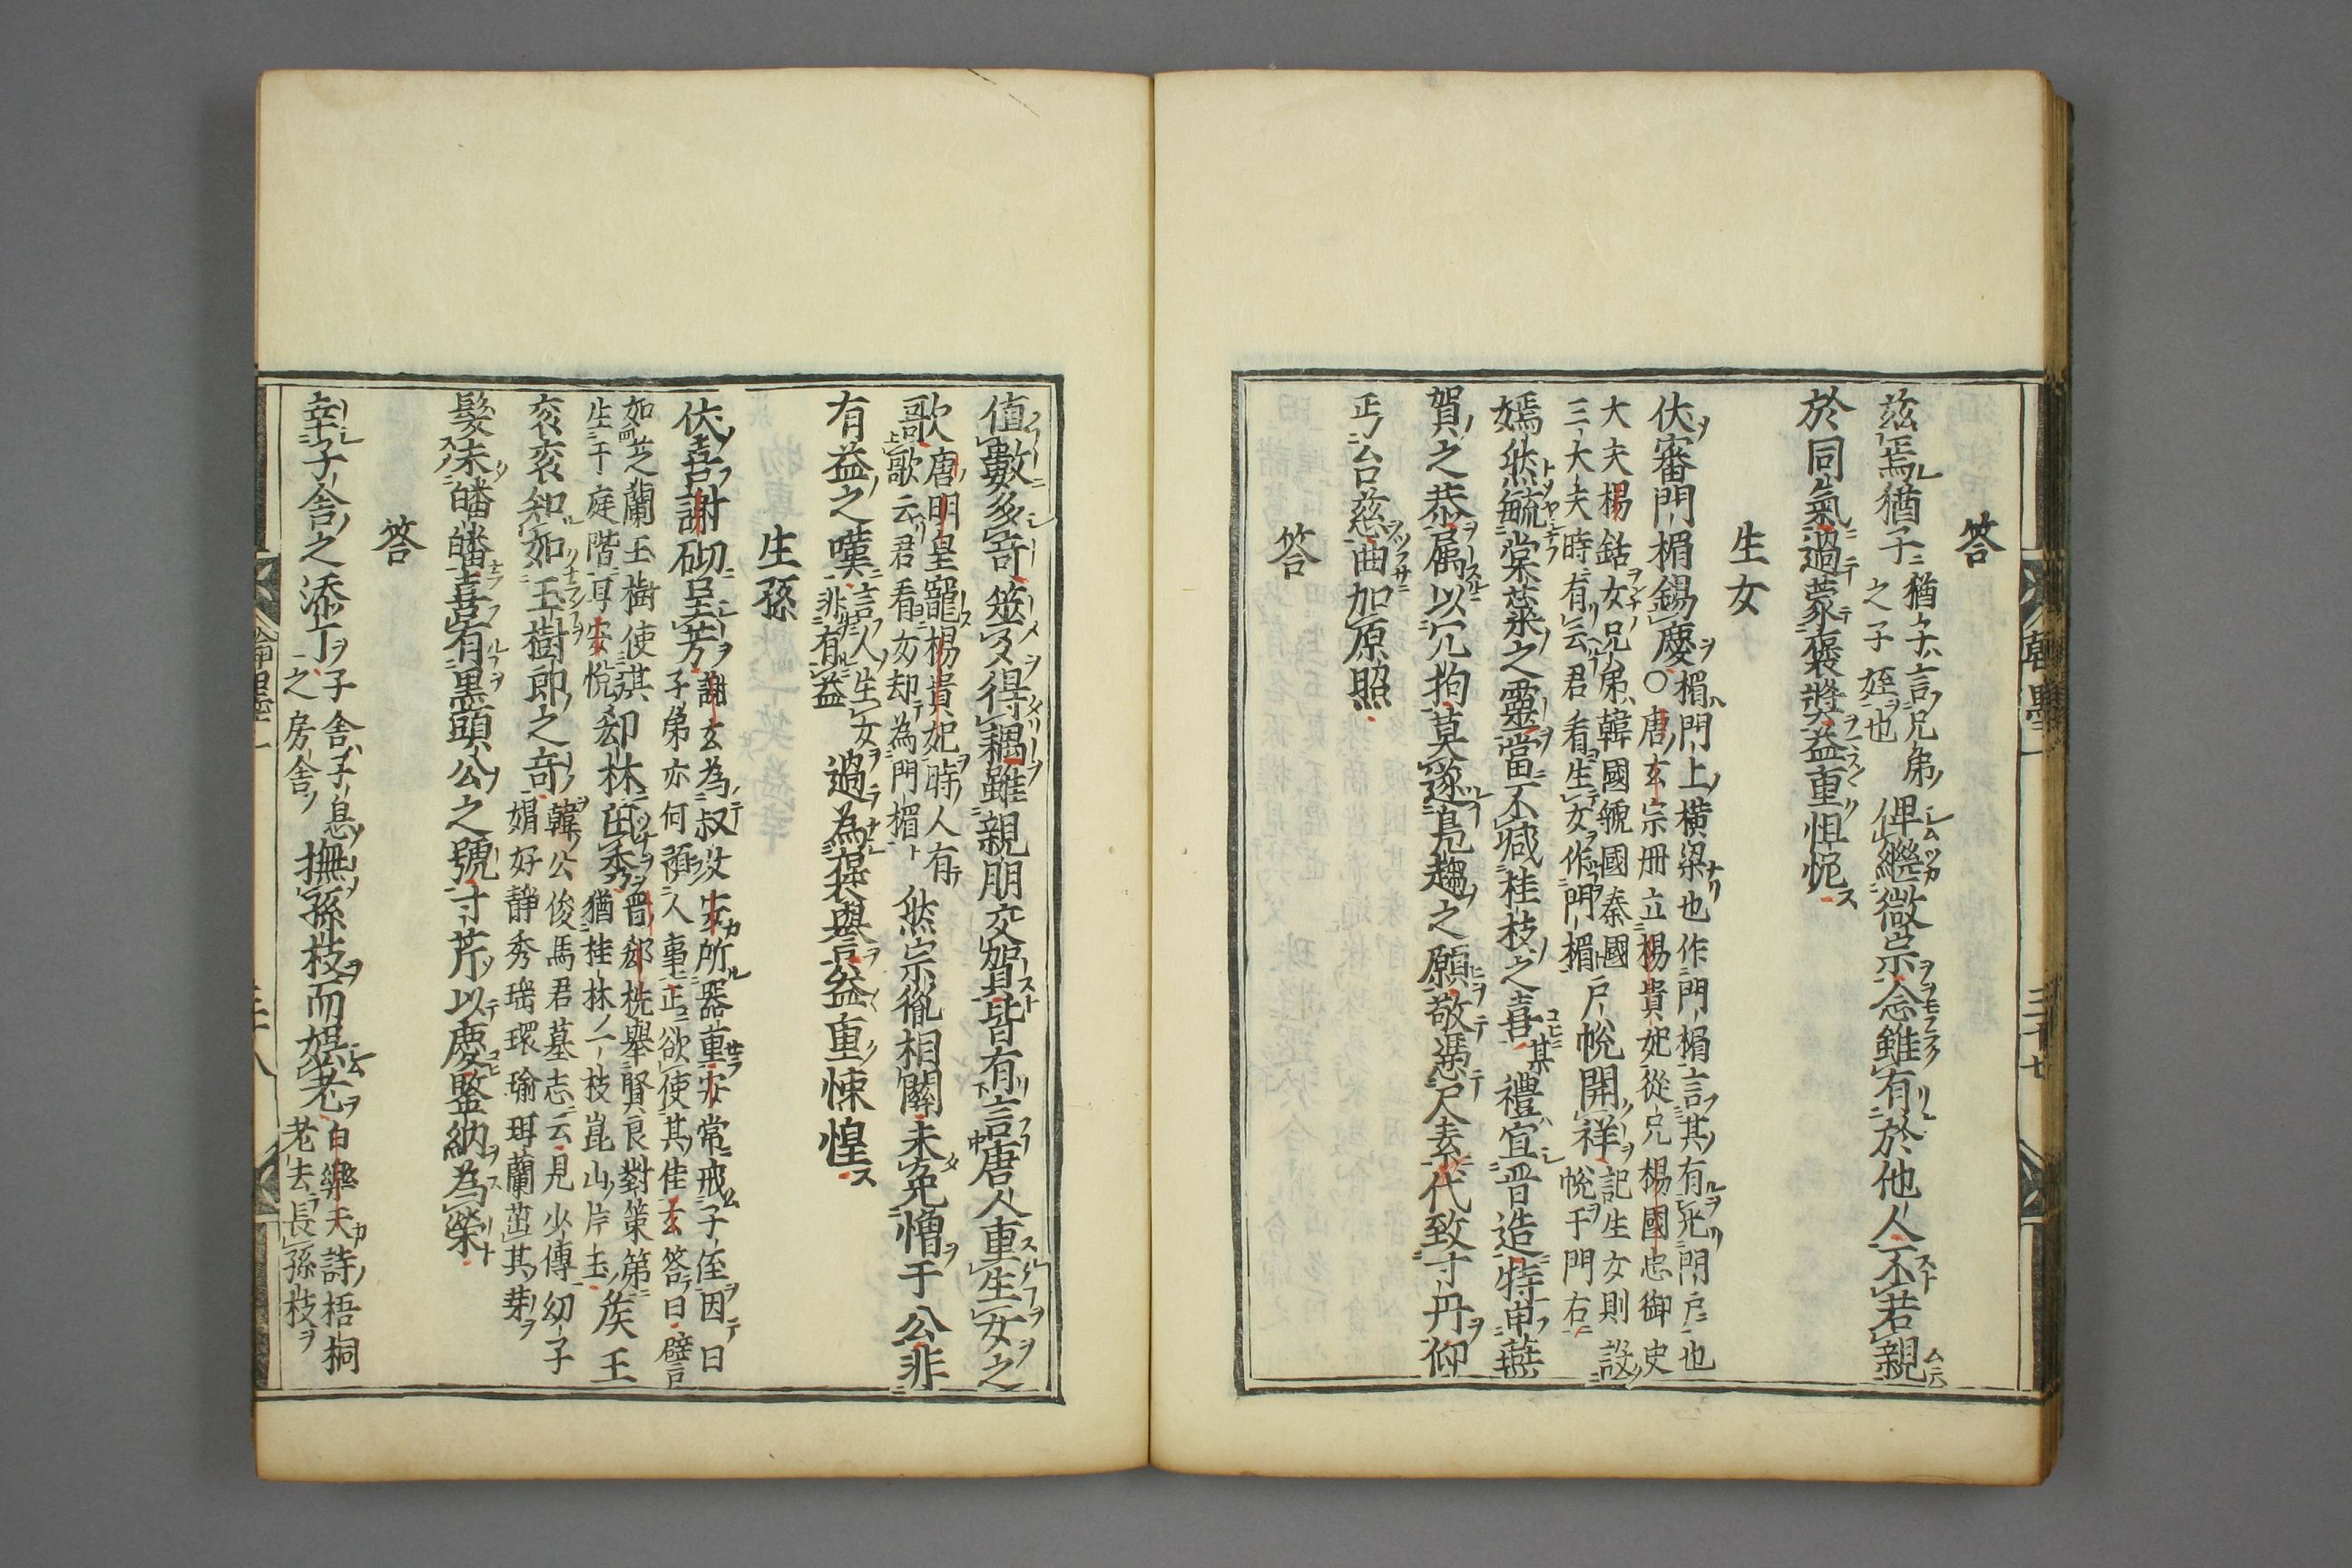 答
茲焉猶子猶子言兄弟之子姪也俾繼微宗念雖有於他人不若親
於同氣過蒙褒奬益重怛怩
生女
伏審門楣錫慶楣門上橫梁也作門楣言其有光門戶也
○唐玄宗冊立楊貴妃從兄楊國忠御史
大夫楊銛女兄弟韓國虢國秦國
三大夫時有云君看生女作門楣戶帨開祥記生女則設帨于門右
嫣然毓棠棻之靈當不減桂枝之喜某禮宜晋造特申燕
賀之恭属以冗拘莫遂鳧趨之願敬憑尺素代致寸丹仰
丐台慈曲加原照
答
值數多奇筮又得耦雖親朋交賀皆有言唐人重生女之
歌唐明皇寵楊貴妃時人有歌云君看女却為門楣然宗胤相關未免憎于公非
有益之嘆言人生女非有益過為褒與言益重悚惶
生孫
伏喜謝砌呈芳謝玄為叔父安所器重安常戒子侄因曰
子弟亦何預人事正欲使其佳玄答曰譬
如芝蘭玉樹使其
生于庭階耳安悅郤林茁秀晋郤詵舉賢良對策第
猶桂林一枝崑山片玉侯王
衮衮知如玉樹郎之奇韓公俊馬君墓志云見少傅幼子
娟好靜秀瑤環瑜珥蘭茁其芽
髮未皤皤喜有黑頭公之號寸芹以慶鑒納為榮
答
辛子舍之添丁子舍子息之房舍撫孫枝而娯老白樂天詩梧桐老去長孫枝